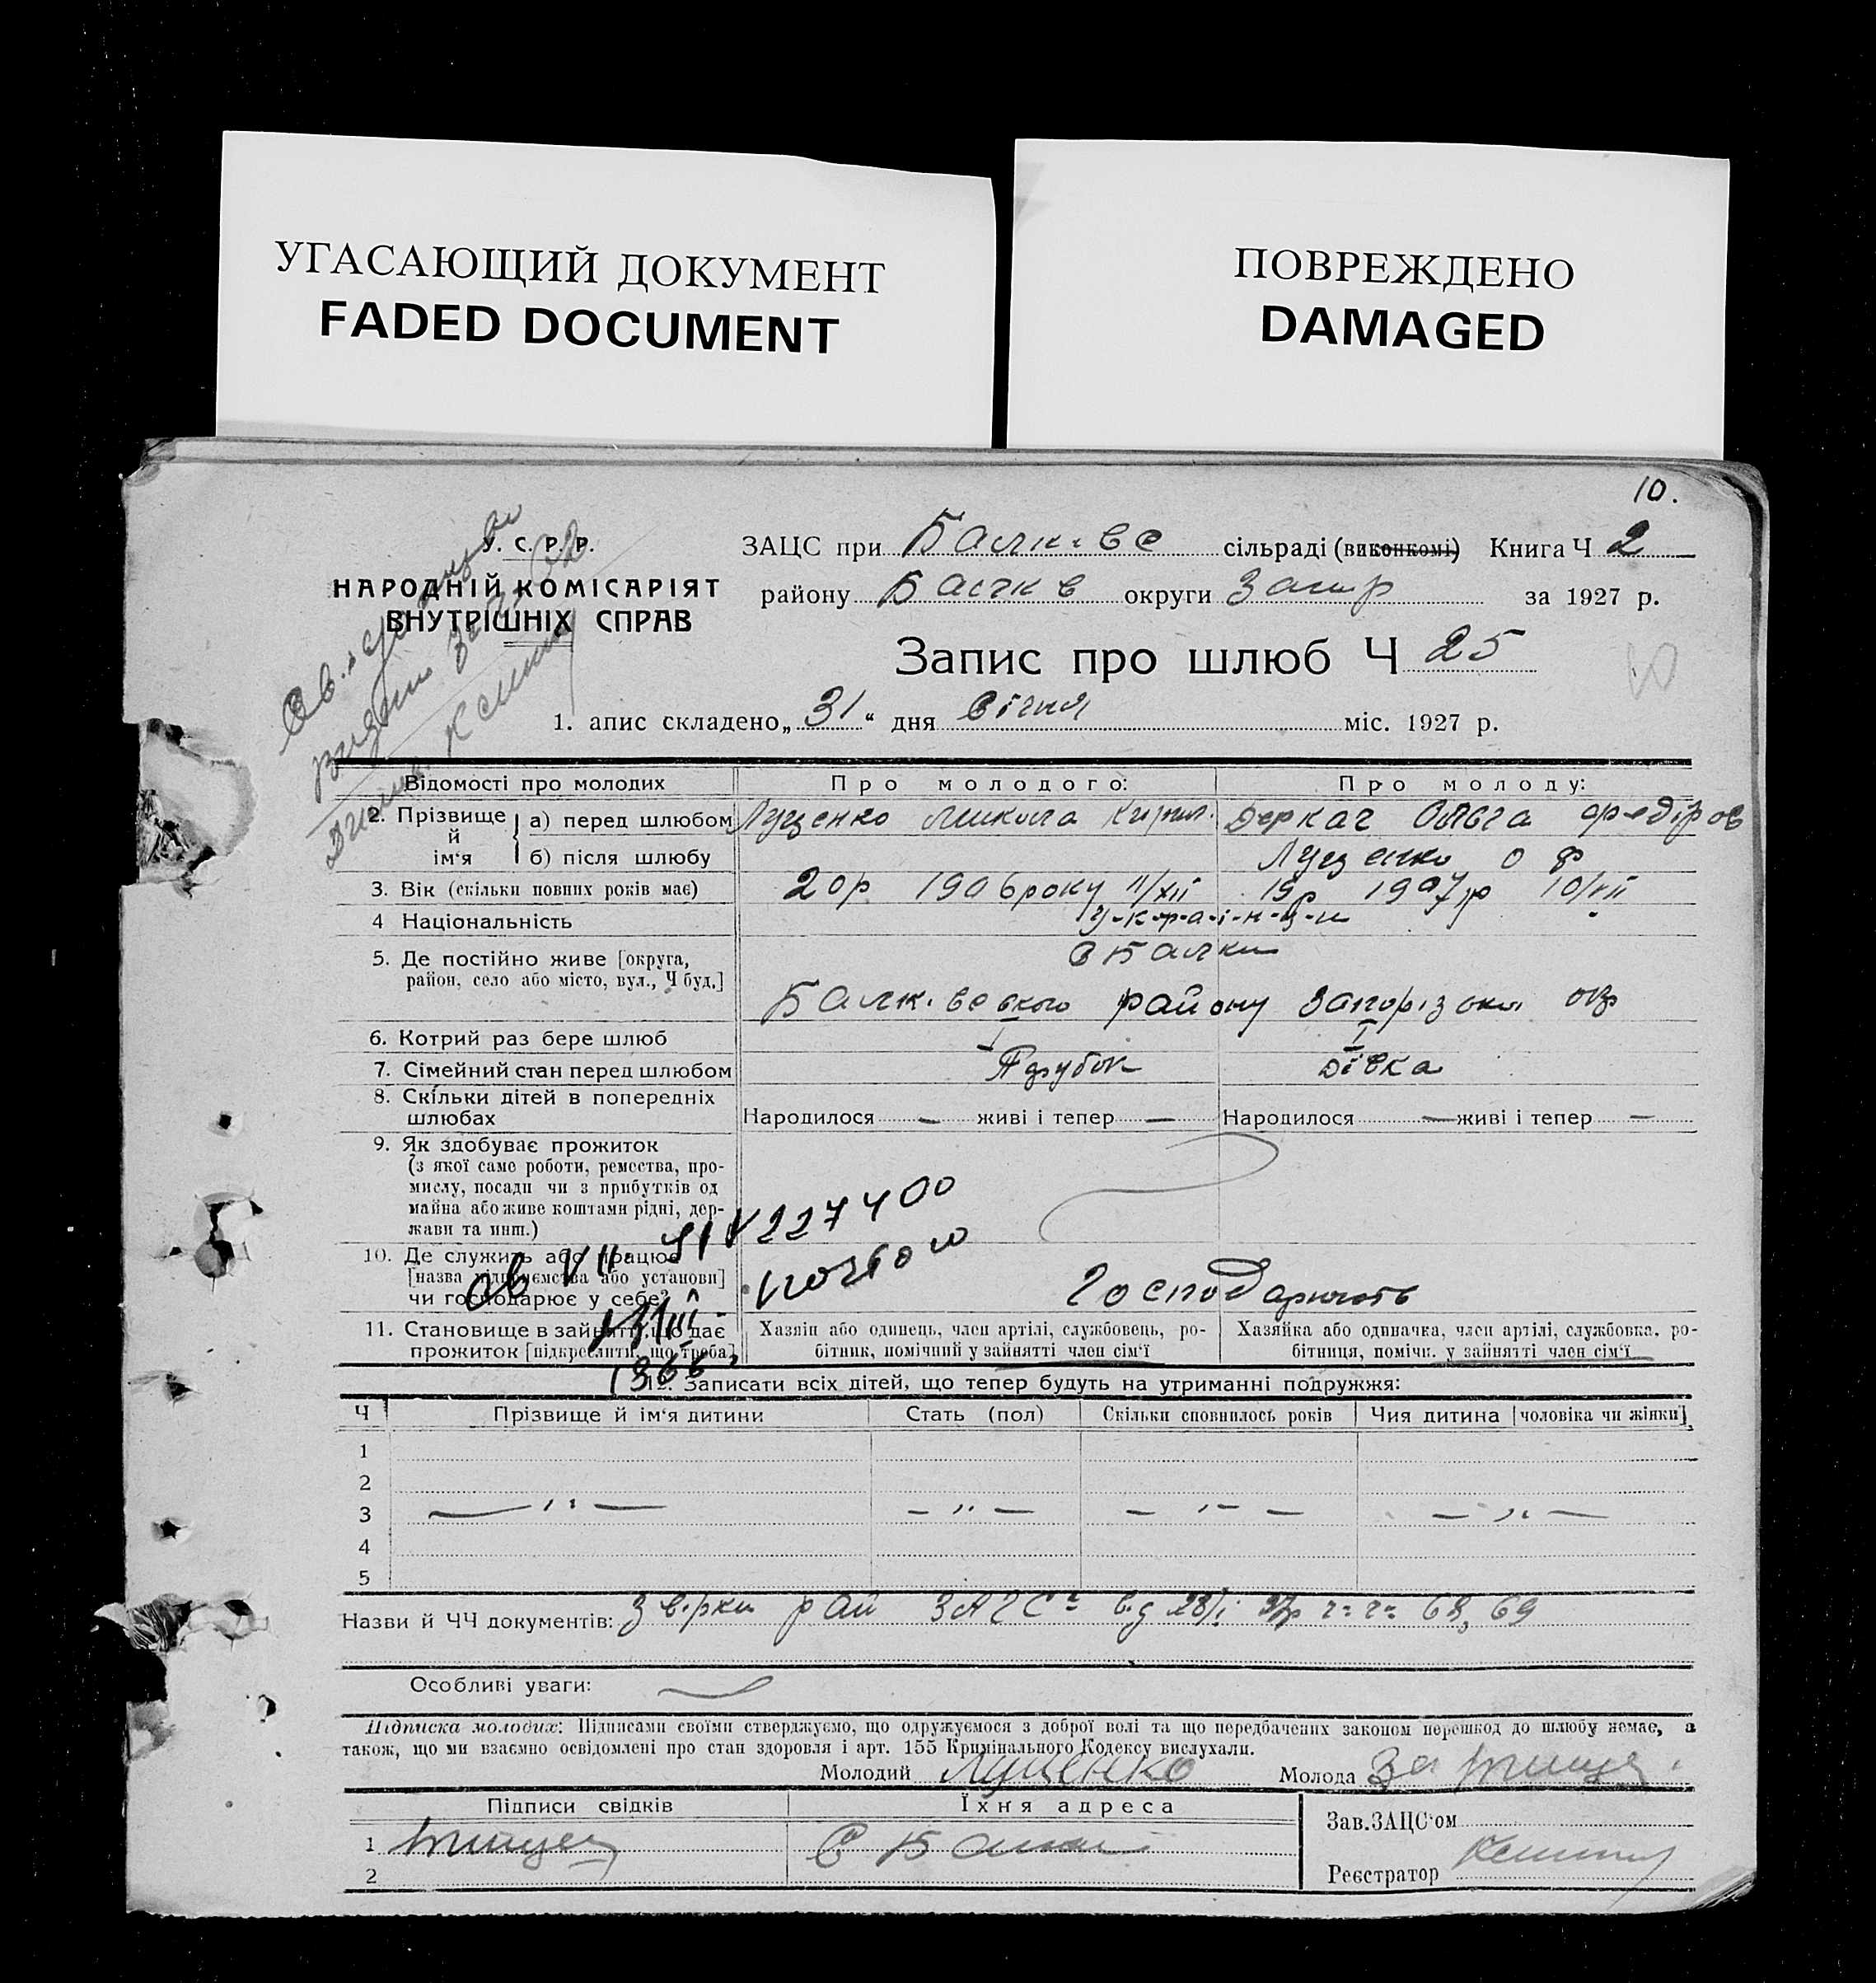 УГАСАЮЩИЙ ДОКУМЕНТ
FADED DOCUMENT
ПОВРЕЖДЕНО
DAMAGED
10.
У. С. Р. Р.
НАРОДНІЙ КОМІСАРІЯТ
ВНУТРІШНІХ СПРАВ
ЗАЦС при сільраді (виконкомі) Книга Ч 2
району округи Запор за 1927 р.
Запис про шлюб Ч 25
1. апис складено „ 31 “ дня Січня міс. 1927 р.
Відомості про молодих Про молодого: Про молоду:
2. Прізвище й ім‘я
а) перед шлюбом Луценко Микола Кирил. Деркач Ольга Федіров
б) після шлюбу Луценко О Ф
3. Вік (скільки повних років має) 20р 1906 року 11/XII 19р 1907р 10/VII
4 Національність У-к-р-а-ї-н-ц-и
5. Де постійно живе [округа, район, село або місто, вул., Ч буд.] с Балки
району Запорізької окр
6. Котрий раз бере шлюб I I
7. Сімейний стан перед шлюбом Парубок Дівка
8. Скільки дітей в попередніх шлюбах Народилося — живі і тепер — Народилося — живі і тепер —
9. Як здобуває прожиток
(з якої саме роботи, ремества, про-
мислу, посади чи з прибутків од
майна або живе коштами рідні, дер-
жави та инш.)
10. Де служить або працює
[назва підприємства або установи]
чи господарює у себе? Господарюють
11. Становище в зайнятті, що дає
прожиток [підкреслити, що треба]
Хазяїн або одинець, член артілі, службовець, ро-
бітник, помічний у зайнятті член сім‘ї
Хазяйка або одиначка, член артілі, службовка, ро-
бітниця, помічн. у зайнятті член сім‘ї
12. Записати всіх дітей, що тепер будуть на утриманні подружжя:
Ч Прізвище й ім‘я дитини Стать (пол) Скільки сповнилось років Чия дитина [чоловіка чи жінки]
1
2
3
4
5
Назви й ЧЧ документів: рай ЗАГС 68, 69
Особливі уваги:
Підписка молодих: Підписами своїми стверджуємо, що одружуємося з доброї волі та що передбачених законом перешкод до шлюбу немає, а
також, що ми взаємно освідомлені про стан здоровля і арт. 155 Кримінального Кодексу вислухали.
Молодий Луценко Молода За
Підписи свідків Їхня адреса Зав. ЗАЦС‘ом
1 С Балки
2 Реєстратор